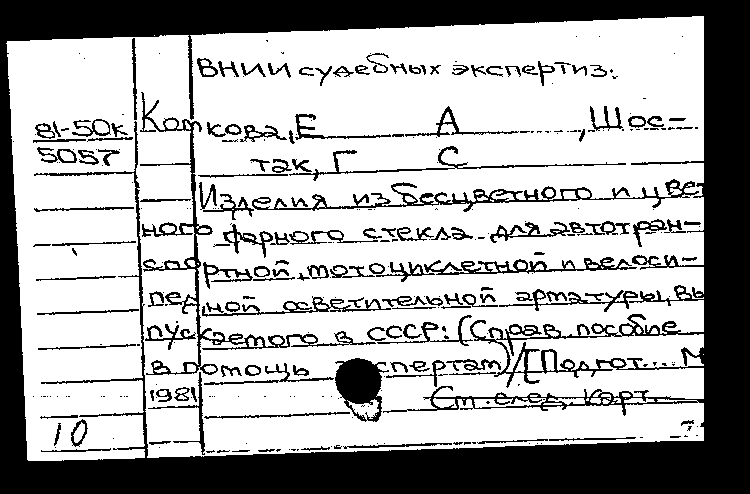 ВНИИ судебных экспертиз:
81-50к Коткова, Е А , Шос-
5057 так, Г С
Изделия из бесцветного и цвет
ного фарного стекла для автотран-
спортной, мотоциклетной и велоси-
педной осветительной арматуры, вы
пускаемого в СССР: (Справ. пособие
в помощь экспертам)/[Подгот... М
1981 См. след. карт.
10